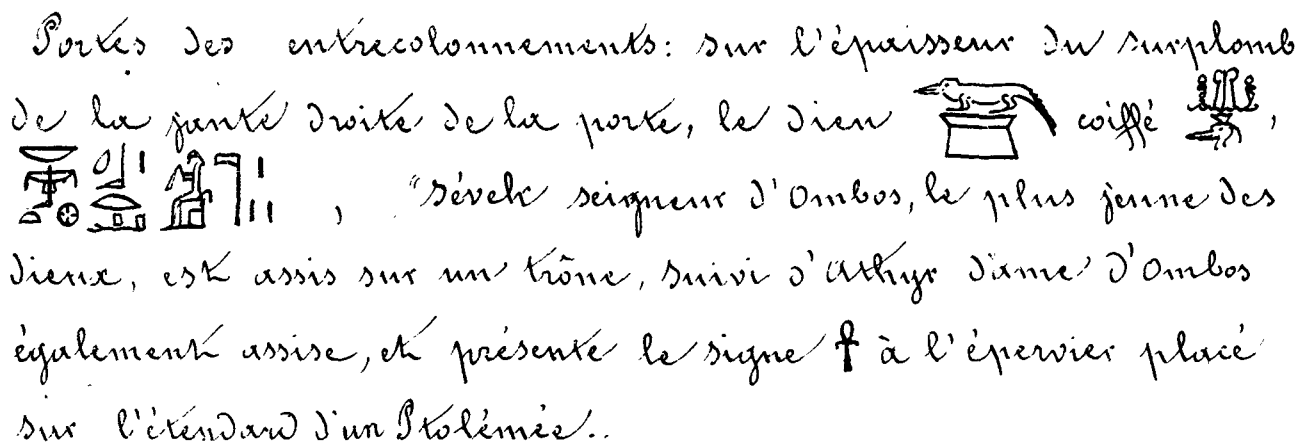 Portes des entrecolonnements: sur l'épaisseur du surplomb
de la jante droite de la porte, le dieu coiffé ,
, "Sévek seigneur d'Ombos, le plus jeune des
dieux, est assis sur un trône, suivi d'Athyr dame d'Ombos
également assise, et présente le signe ☥ à l'épervier placé
sur l'étendard d'un Ptolémée..